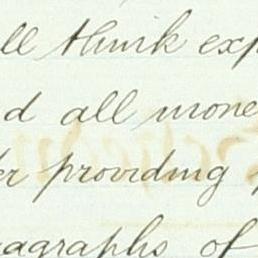 ll think exp
d all mone
er providing
agraphs of